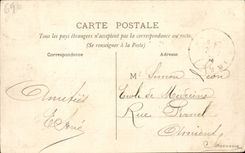 CARTE POSTALE
Tous les pays étrangers n'acceptent pas la correspondance au recto
(Se renseigner à la Poste)
Correspondance
Adresse
Mr Simon Léon
Ecole de Médecine
Rue
Amiens
Somme
Amitiés